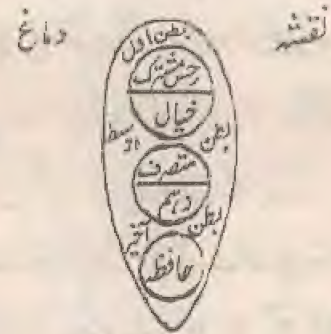 نقشہ دماغ
بطن اول
حس مشترک
خیال
بطن اوسط
متصرفہ
وہم
بطن آخیر
حافظہ